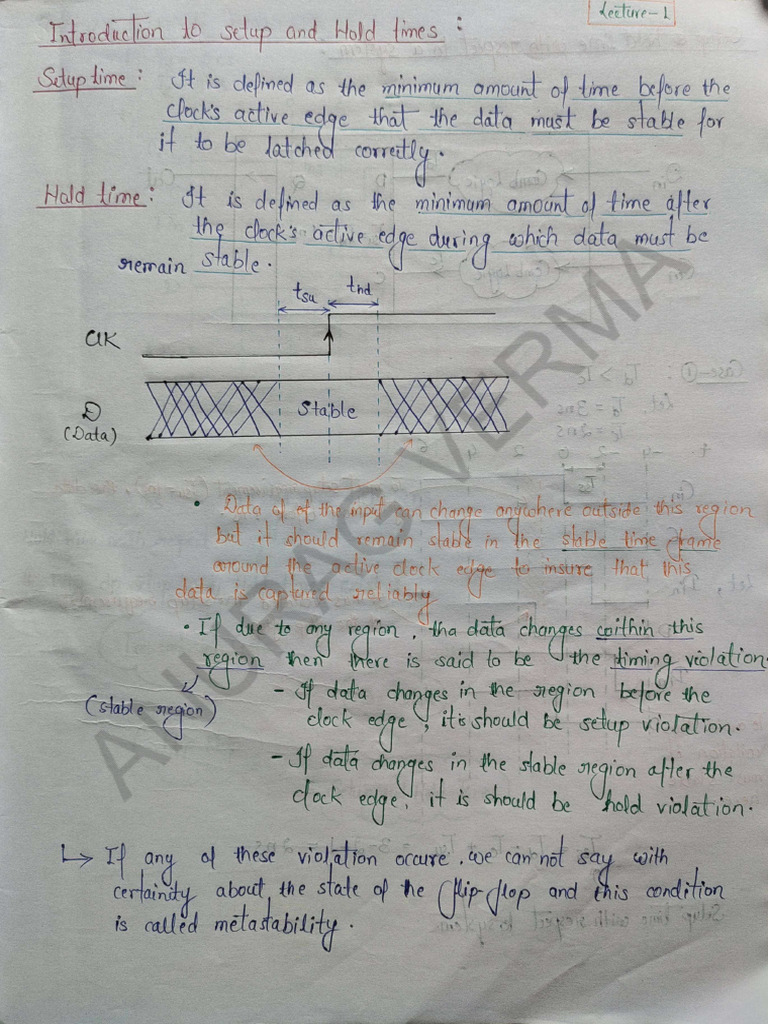 Lecture-1
Introduction to setup and Hold times :
Setup time : It is defined as the minimum amount of time before the
clock's active edge that the data must be stable for
it to be latched correctly.
Hold time : It is defined as the minimum amount of time after
the clock's active edge during which data must be
remain stable.
tsu thd
CLK
D Stable
(Data)
• Data of of the input can change anywhere outside this region
but it should remain stable in the stable time frame
around the active clock edge to insure that this
data is captured reliably
• If due to any region, tha data changes within this
region then there is said to be the timing violation.
(stable region)
- If data changes in the region before the
clock edge, it is should be setup violation.
- If data changes in the stable region after the
clock edge, it is should be hold violation.
↳ If any of these violation occure, we can not say with
certainity about the state of the flip-flop and this condition
is called metastability.
ANURAG VERMA